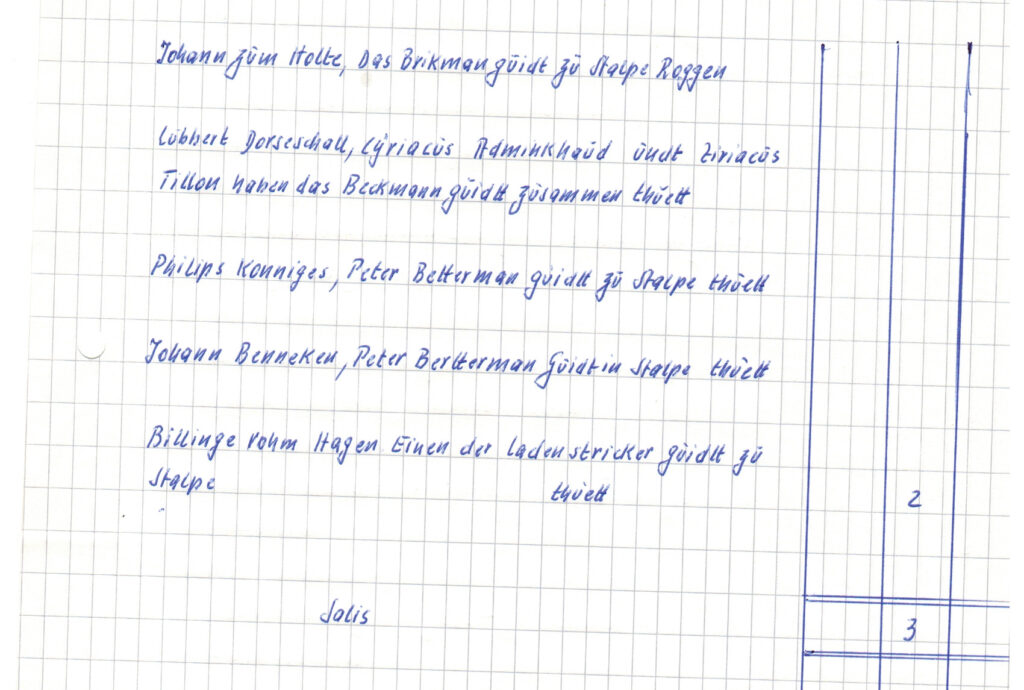 Johann zům Holte, Das Brikman gůidt zů Stalpe Roggen
Lůbbert Dorseschall, Cÿriacůs Adminkhaůd ůndt Ziriacůs
Tillon haben das Beckmann gůidtt zůsammen thůett
Philips Konniges, Peter Betterman gůidtt zů Stalpe thůett
Johann Benneken, Peter Bertterman Gůidt in Stalpe thůett
Billinge vohm Hagen Einen der Ladenstricker gůidtt zů
Stalpe thůett 2
Salis 3